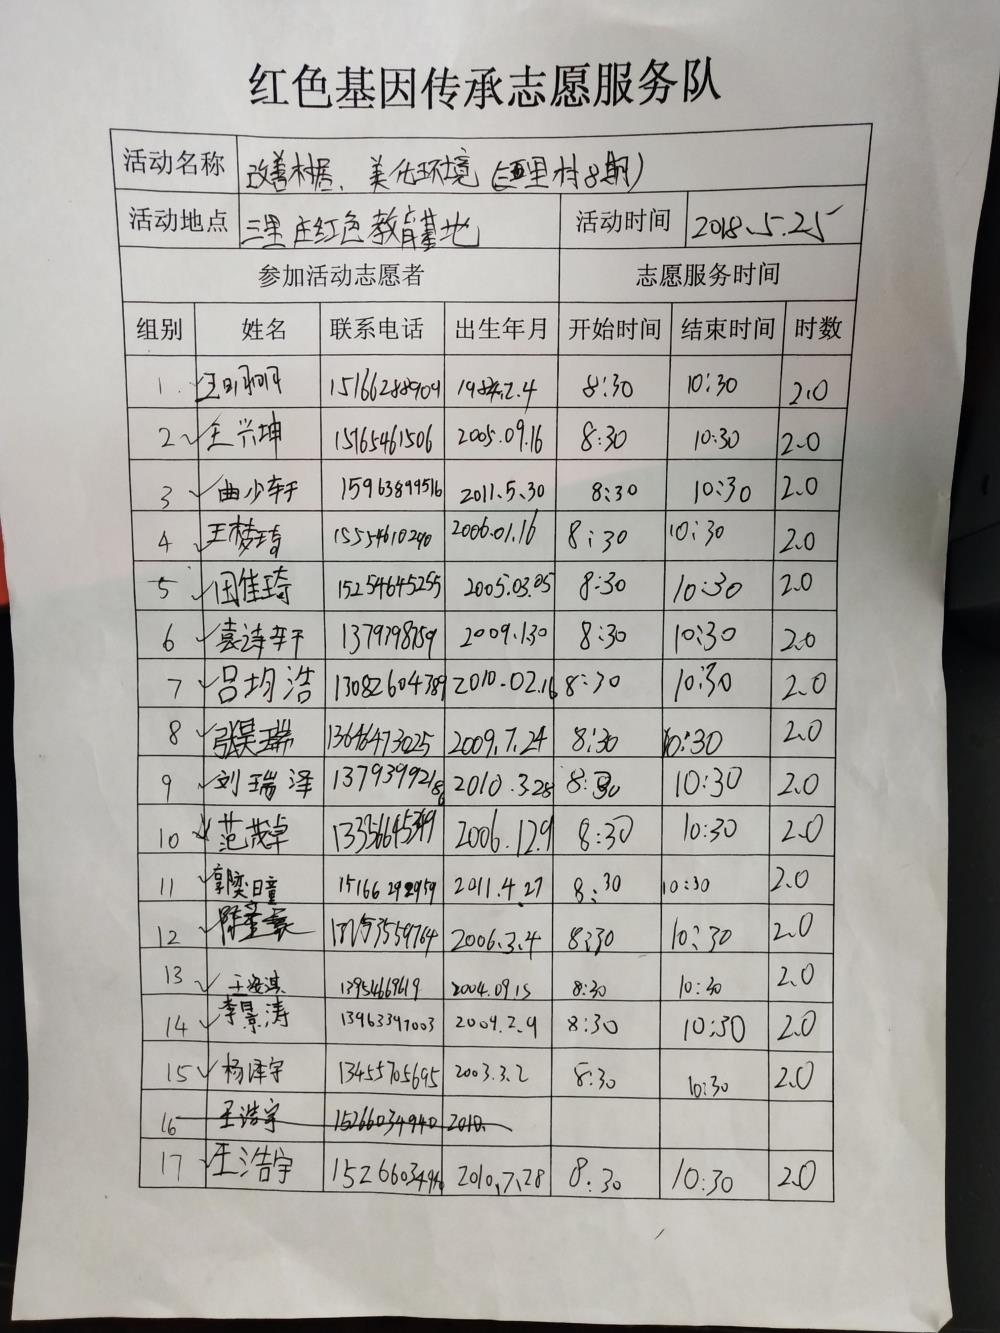 红色基因传承志愿服务队
活动名称 改善村居、美化环境(三里村8期)
活动地点 三里庄红色教育基地 活动时间 2018.5.25
参加活动志愿者 志愿服务时间
组别 姓名 联系电话 出生年月 开始时间 结束时间 时数
1 15166288909 8:30 10:30 2.0
2 王兴坤 15165461506 2005.09.16 8:30 10:30 2.0
3 曲少轩 15963899516 2011.5.30 8:30 10:30 2.0
4 王梦琦 2006.01.16 8:30 10:30 2.0
5 田佳琦 15254645255 2005.03.05 8:30 10:30 2.0
6 袁诗轩 2009.1.30 8:30 10:30 2.0
7 吕均浩 13082604389 2010.02.16 8:30 10:30 2.0
8 张昊瑞 13646473025 2009.7.24 8:30 10:30 2.0
9 刘瑞泽 13793992186 2010.3.28 8:30 10:30 2.0
10 范茂卓 2006.12.9 8:30 10:30 2.0
11 郭奕瞳 15166292959 2011.4.27 8:30 10:30 2.0
12 2006.3.4 8:30 10:30 2.0
13 2004.09.15 8:30 10:30 2.0
14 李景涛 13963397003 2009.2.9 8:30 10:30 2.0
15 杨泽宇 13455705695 2003.3.2 8:30 10:30 2.0
16 王浩宇 15266034940 2010.
17 王浩宇 15266034940 2010.7.28 8:30 10:30 2.0